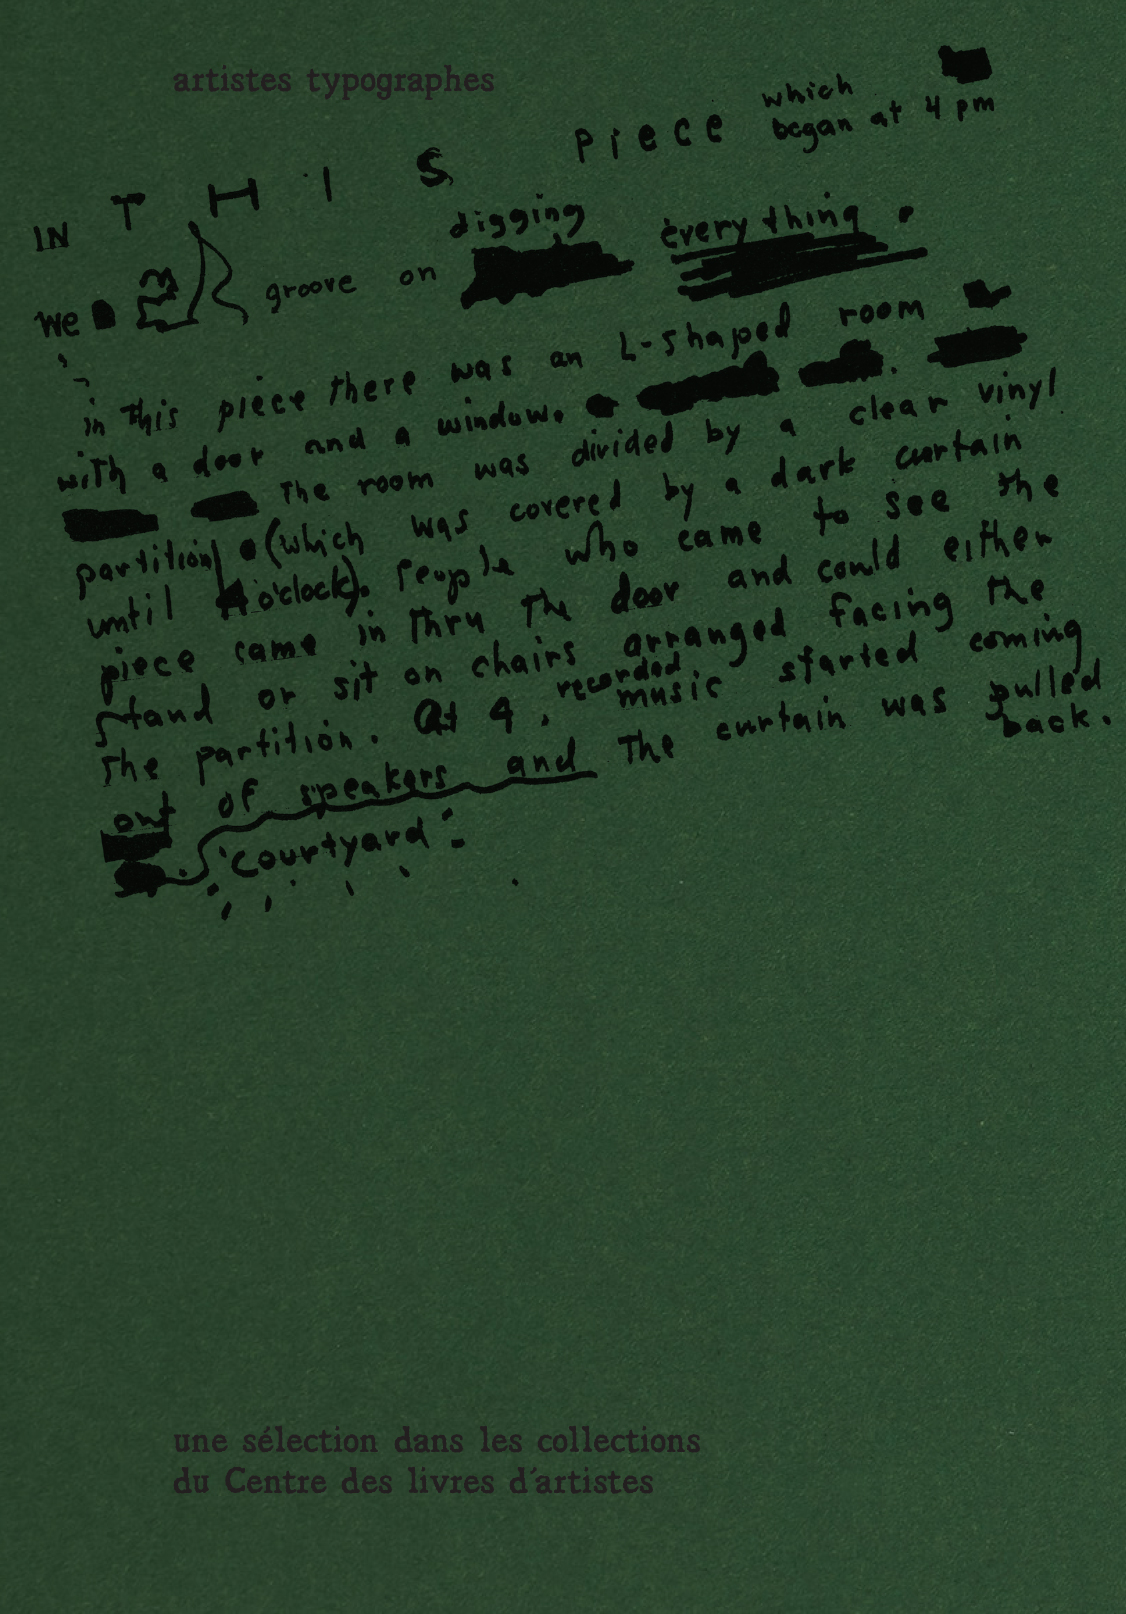 artistes typographes
IN T H I S piece which
began at 4 pm
digging everything.
we groove on
in this piece there was an L-shaped room
with a door and a window.
The room was divided by a clear vinyl
partition (which was covered by a dark curtain
until 4 o'clock). People who came to see the
piece came in thru the door and could either
stand or sit on chairs arranged facing the
The partition. At 4, recorded music started coming
out of speakers and The curtain was pulled
back.
"courtyard"
une sélection dans les collections
du Centre des livres d'artistes